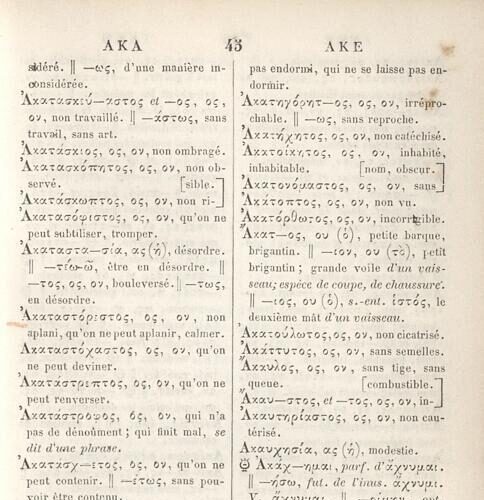 ΑΚΑ 45 ΑΚΕ
sidéré. ‖ —ως, d'une manière in-
considérée.
Ἀκατασκεύ—αστος et —ος, ος,
ον, non travaillé. ‖ —άστως, sans
travail, sans art.
Ἀκατάσκιος, ος, ον, non ombragé.
Ἀκατασκόπητος, ος, ον, non ob-
servé. [sible.]
Ἀκατάσκωπτος, ος, ον, non ri-
Ἀκατασόφιστος, ος, ον, qu'on ne
peut subtiliser, tromper.
Ἀκαταστα—σία, ας (ἡ), désordre.
‖ —τέω-ῶ, être en désordre. ‖
—τος, ος, ον, bouleversé. ‖ —τως,
en désordre.
Ἀκαταστόρεστος, ος, ον, non
aplani, qu'on ne peut aplanir, calmer.
Ἀκαταστόχαστος, ος, ον, qu'on
ne peut deviner.
Ἀκατάστρεπτος, ος, ον, qu'on ne
peut renverser.
Ἀκατάστροφος, ος, ον, qui n'a
pas de dénoûment ; qui finit mal, se
dit d'une phrase.
Ἀκατάσχ—ετος, ος, ον, qu'on ne
peut contenir. ‖ —έτως, sans pou-
voir être contenu.
pas endormi, qui ne se laisse pas en-
dormir.
Ἀκατηγόρητ—ος, ος, ον, irrépro-
chable. ‖ —ως, sans reproche.
Ἀκατήχητος, ος, ον, non catéchisé.
Ἀκατοίκητος, ος, ον, inhabité,
inhabitable. [nom, obscur.]
Ἀκατονόμαστος, ος, ον, sans
Ἀκάτοπτος, ος, ον, non vu.
Ἀκατόρθωτος, ος, ον, incorrigible.
Ἄκατ—ος, ου (ὁ), petite barque,
brigantin. ‖ —ιον, ου (τὸ), petit
brigantin ; grande voile d'un vais-
seau; espèce de coupe, de chaussure.
‖ —ιος, ου (ὁ), s.-ent. ἱστός, le
deuxième mât d'un vaisseau.
Ἀκατούλωτος, ος, ον, non cicatrisé.
Ἀκάττυτος, ος, ον, sans semelles.
Ἄκαυλος, ος, ον, sans tige, sans
queue. [combustible.]
Ἄκαυ—στος, et —τος, ος, ον, in-
Ἀκαυτηρίαστος, ος, ον, non cau-
térisé.
Ἀκαυχησία, ας (ἡ), modestie.
Ἀκάχ—ημαι, parf. d'ἄχνυμαι.
‖ —ήσω, fut. de l'inus. ἄχνυμι.